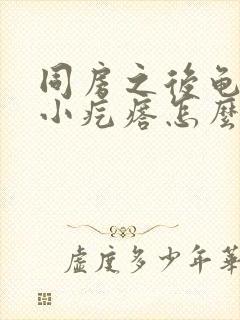 同房之後龟
小疙瘩怎麼
虚度多少年華